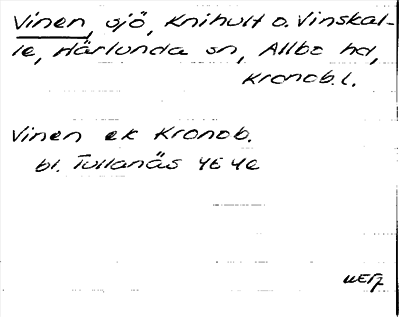 Vinen, sjö, Knihult o. Vinskal-
le, Härlunda sn, Allbo hd,
Kronob. l.
Vinen ek Kronob.
bl. Tullanäs 4E 4e